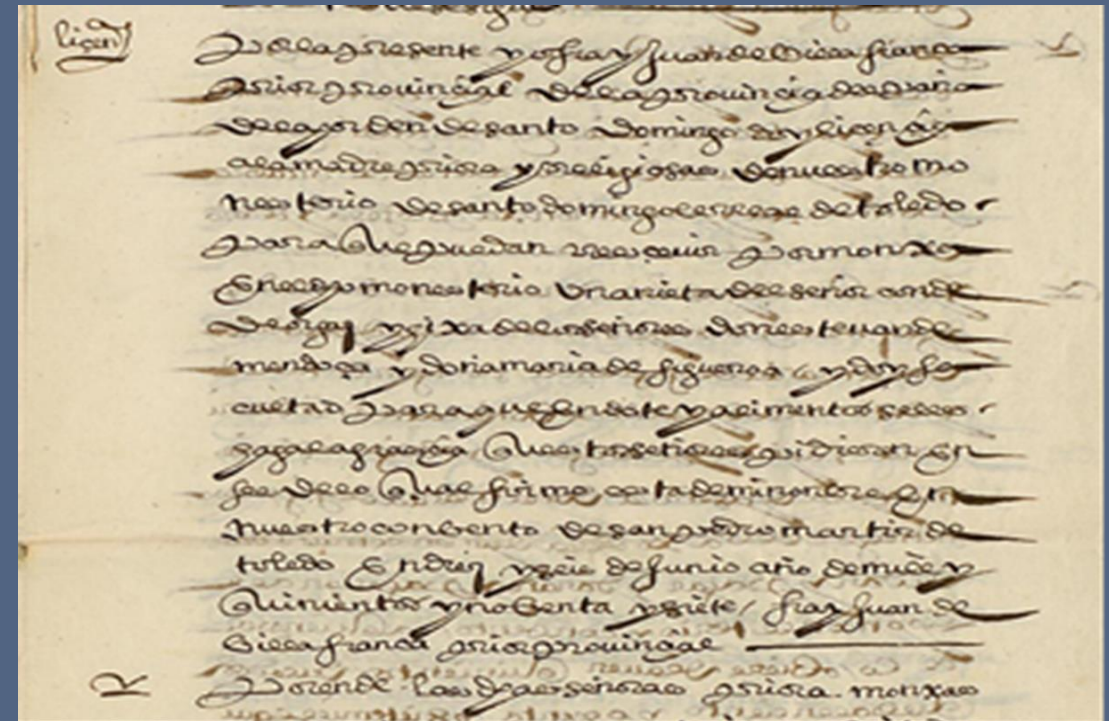 licenᵃ
Por la presente yo fray Juan de Billa franca
prior provinçial de la provinçia de españa
de la orden de santo domingo doy liçençia
a la madre priora y religiosas de nuestro mo
nesterio de santo domingo el rreal de toledo
para que puedan rresçeuir por monxa
En ese dho monesterio Una nieta del señor conde
de orgaz y hixa de los señores don esteuan de
mendoça y doña maria de figueroa y doy fa
cultad para que En dote y alimentos se les
haga la graçia que estos señores pidieren En
fee de lo qual firmo esta de mi nombre En
nuestro conbento de san pedro martir de
toledo En diez y seis de Junio año de mill y
quinientos y nobenta y siete / fray Juan de
Billa franca prior provinçial
R
Por ende las dhas señoras priora monxas